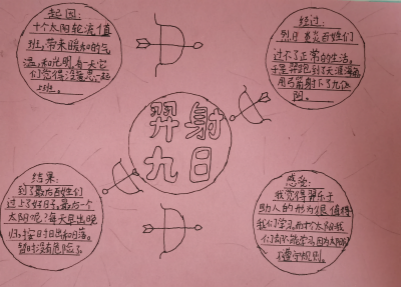 起因:
十个太阳轮流值
班,带来暖和的气
温,和光明,有一天它
们觉得没意思,一起
上班。
经过:
烈日炎炎百姓们
过不了正常的生活,
于是羿跑到了天涯海角
用弓箭射下了九个太
阳。
羿射
九日
结果:
到了最后百姓们
过上了好日子,最后一个
太阳呢?每天早出晚
归,按时日出和日落。
暂时没有危险了。
感觉:
我觉得羿乐于
助人的行为很值得
我们学习,而十个太阳我
们
学习,因为太阳们
不遵守规则。